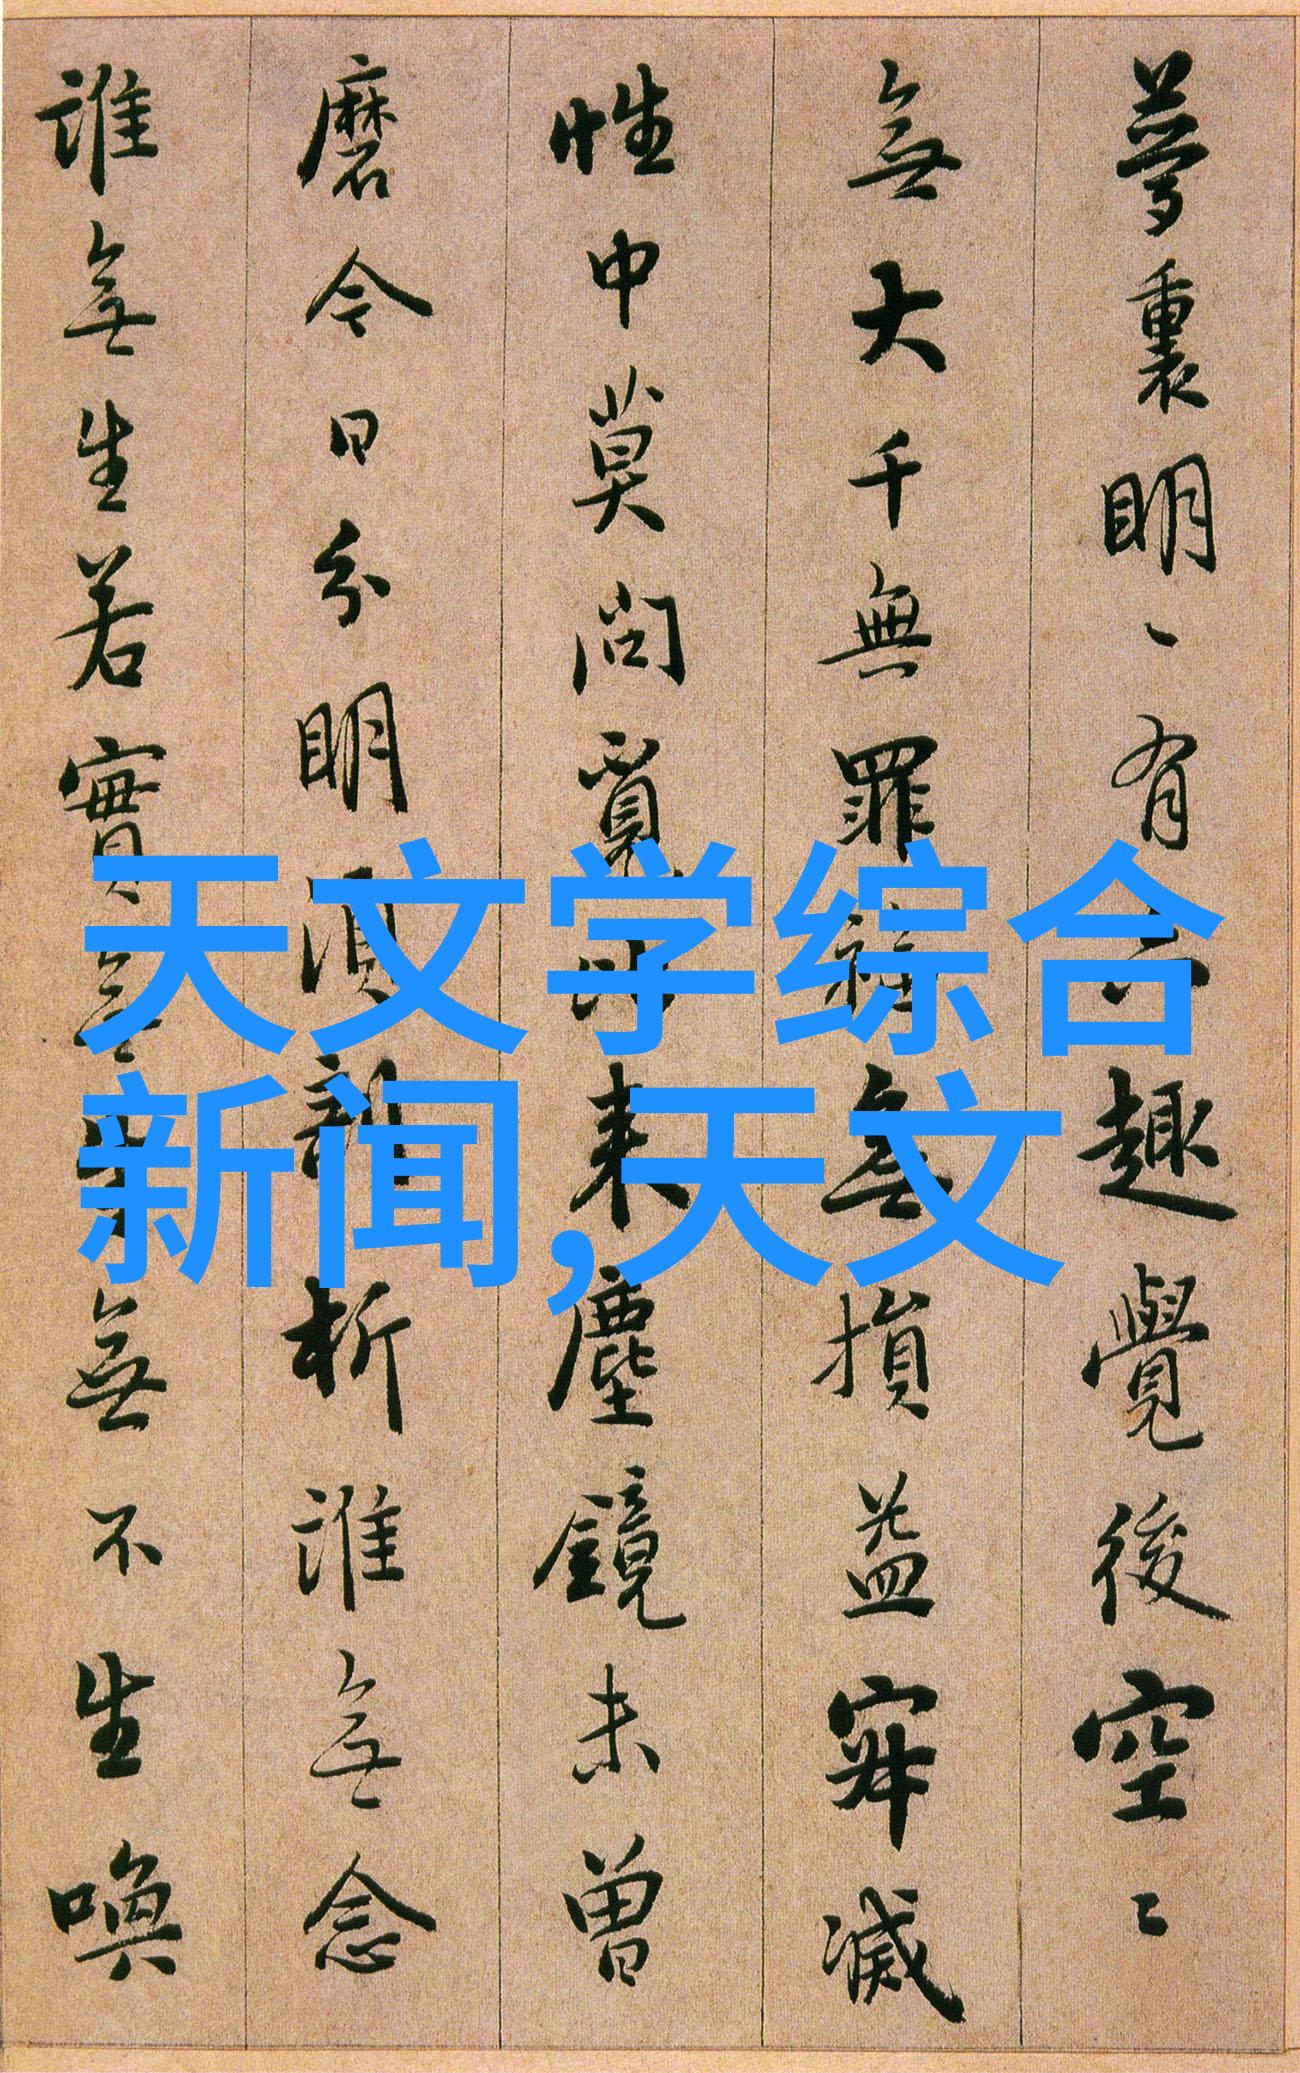 夢裏明明有六趣覺後空空
無大千無罪福無損益寂滅
性中莫問覓比來塵鏡未曾
磨今日分明須剖析誰無念
誰無生若實無生無不生喚
天文学综合
新闻,天文